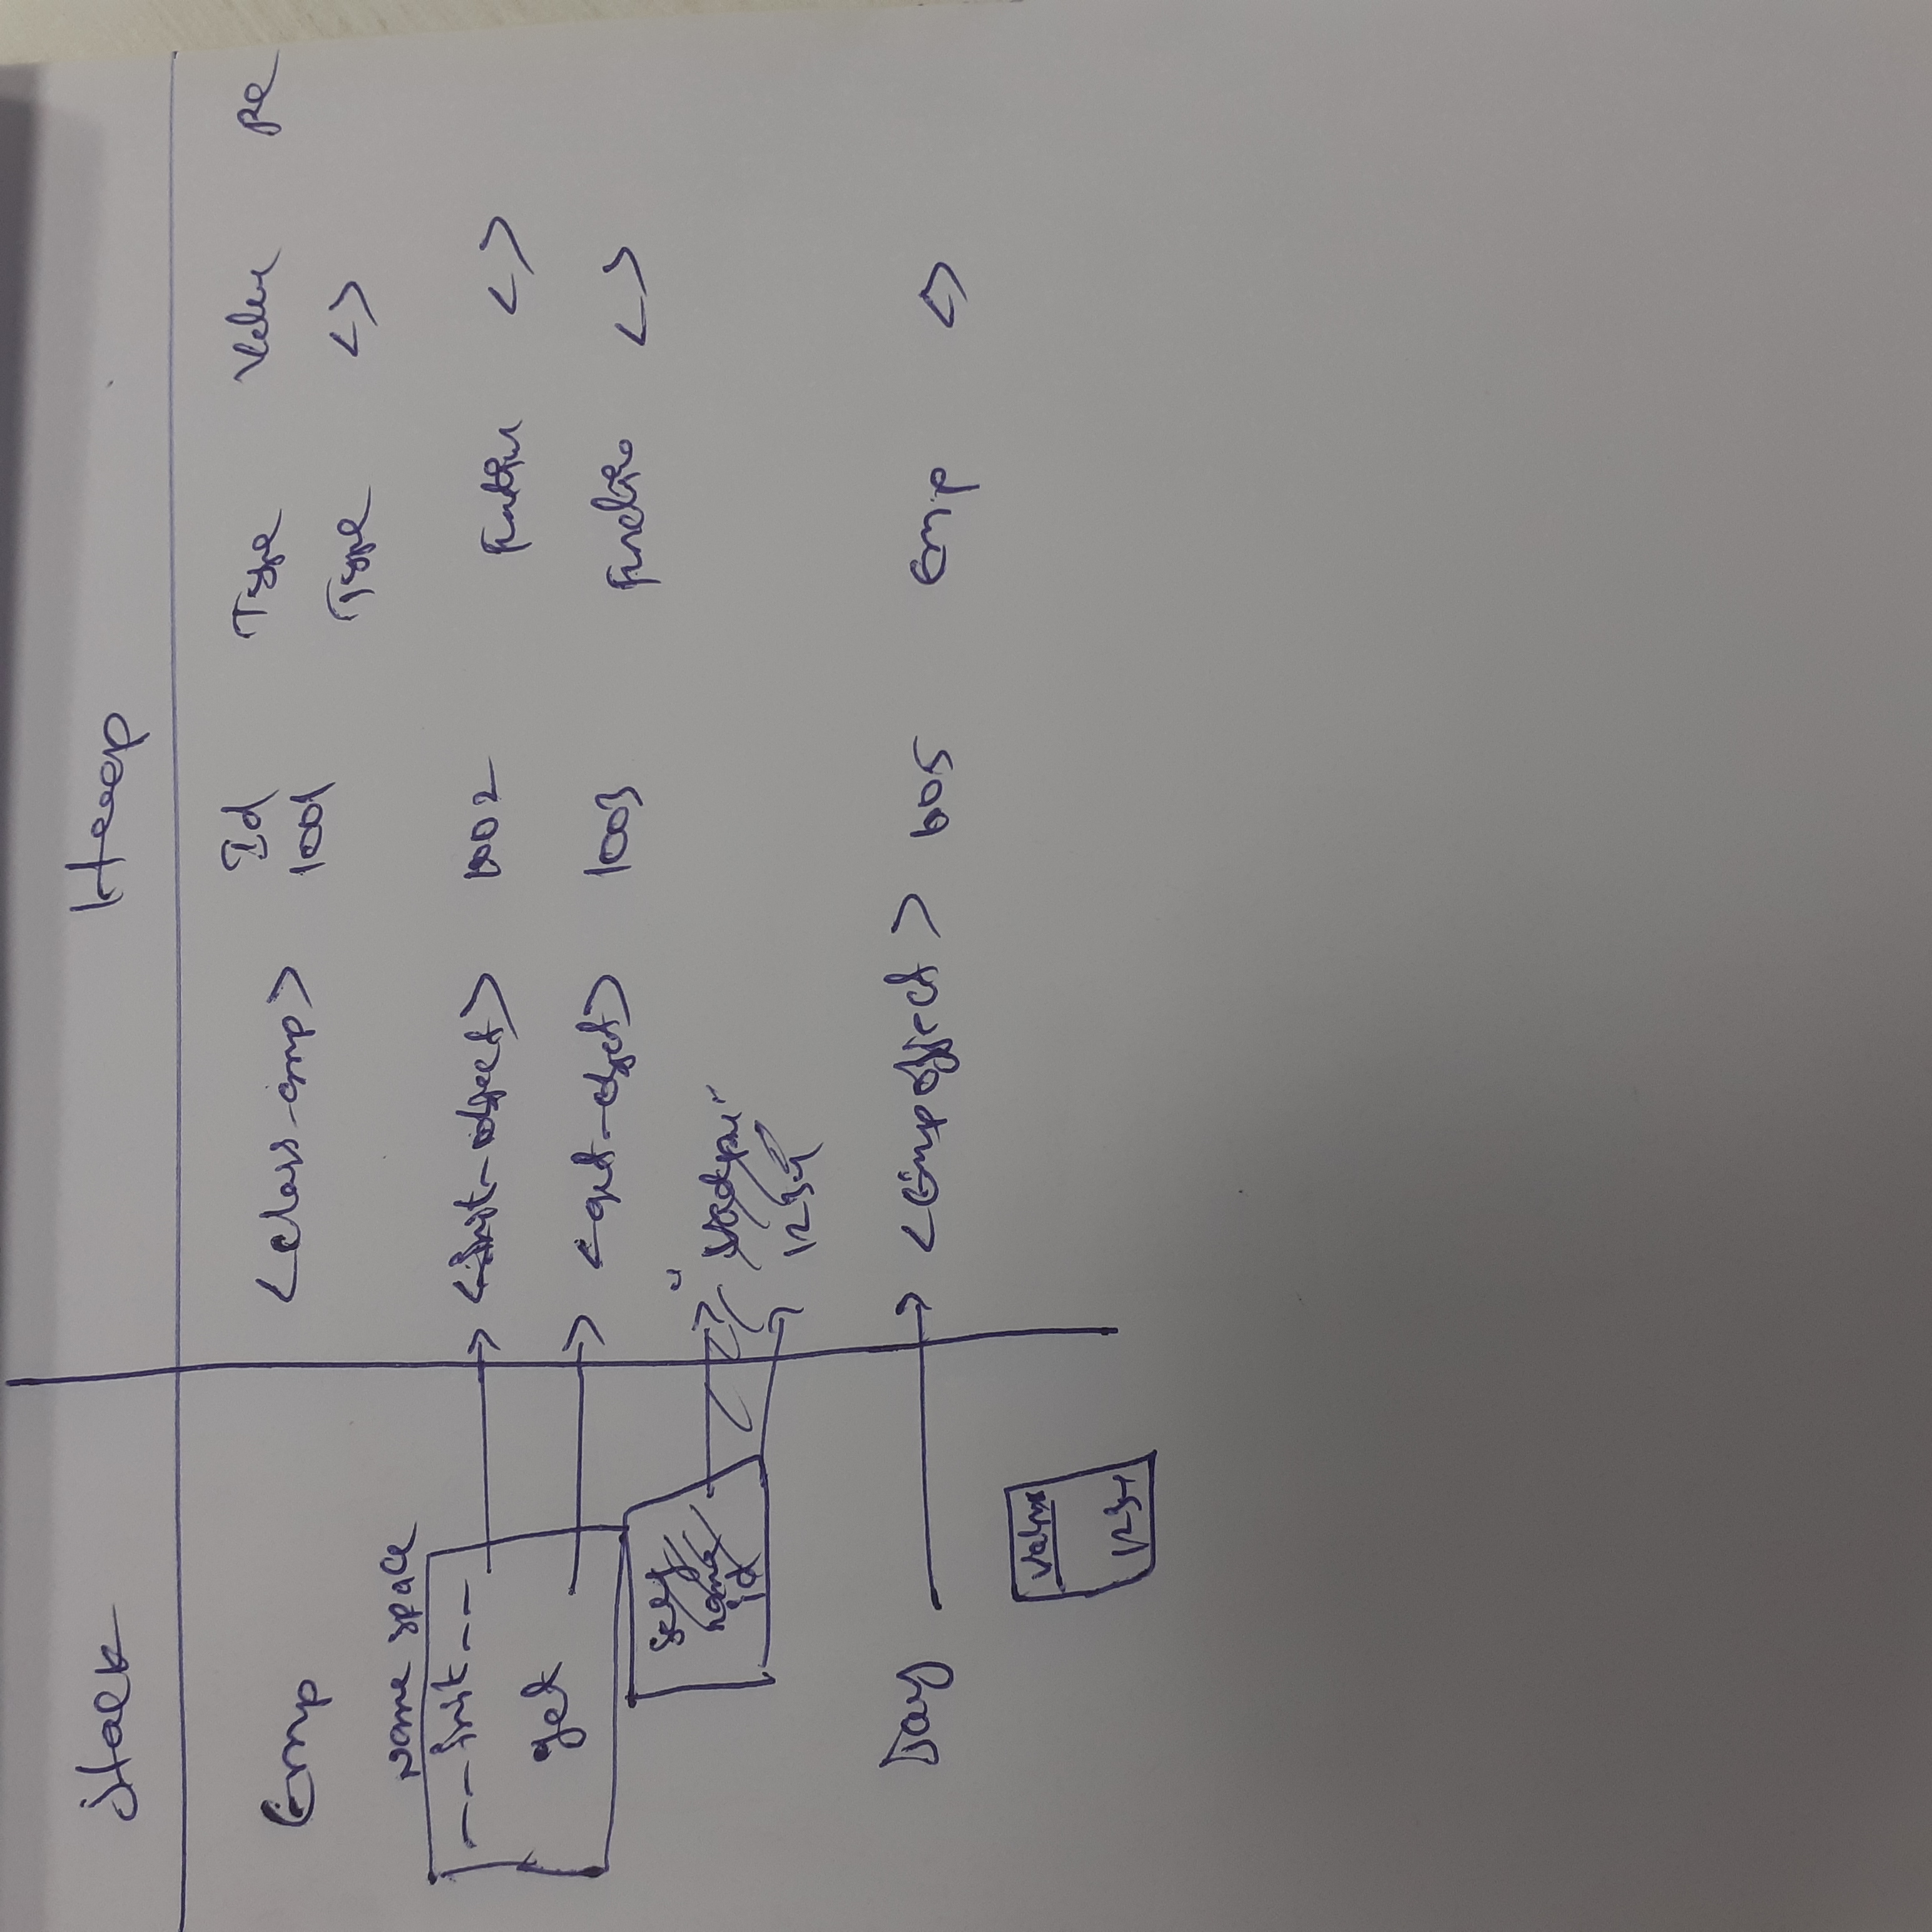 Stack Heap
Id Type Value Re
Emp <class-emp> 1001
Type <>
Name space
__init__ <init-object> 1002 Function <>
get <get-object> 1003 Function <>
self
name "
id 1234
Jay <Emp object> 1005 Emp <>
1234